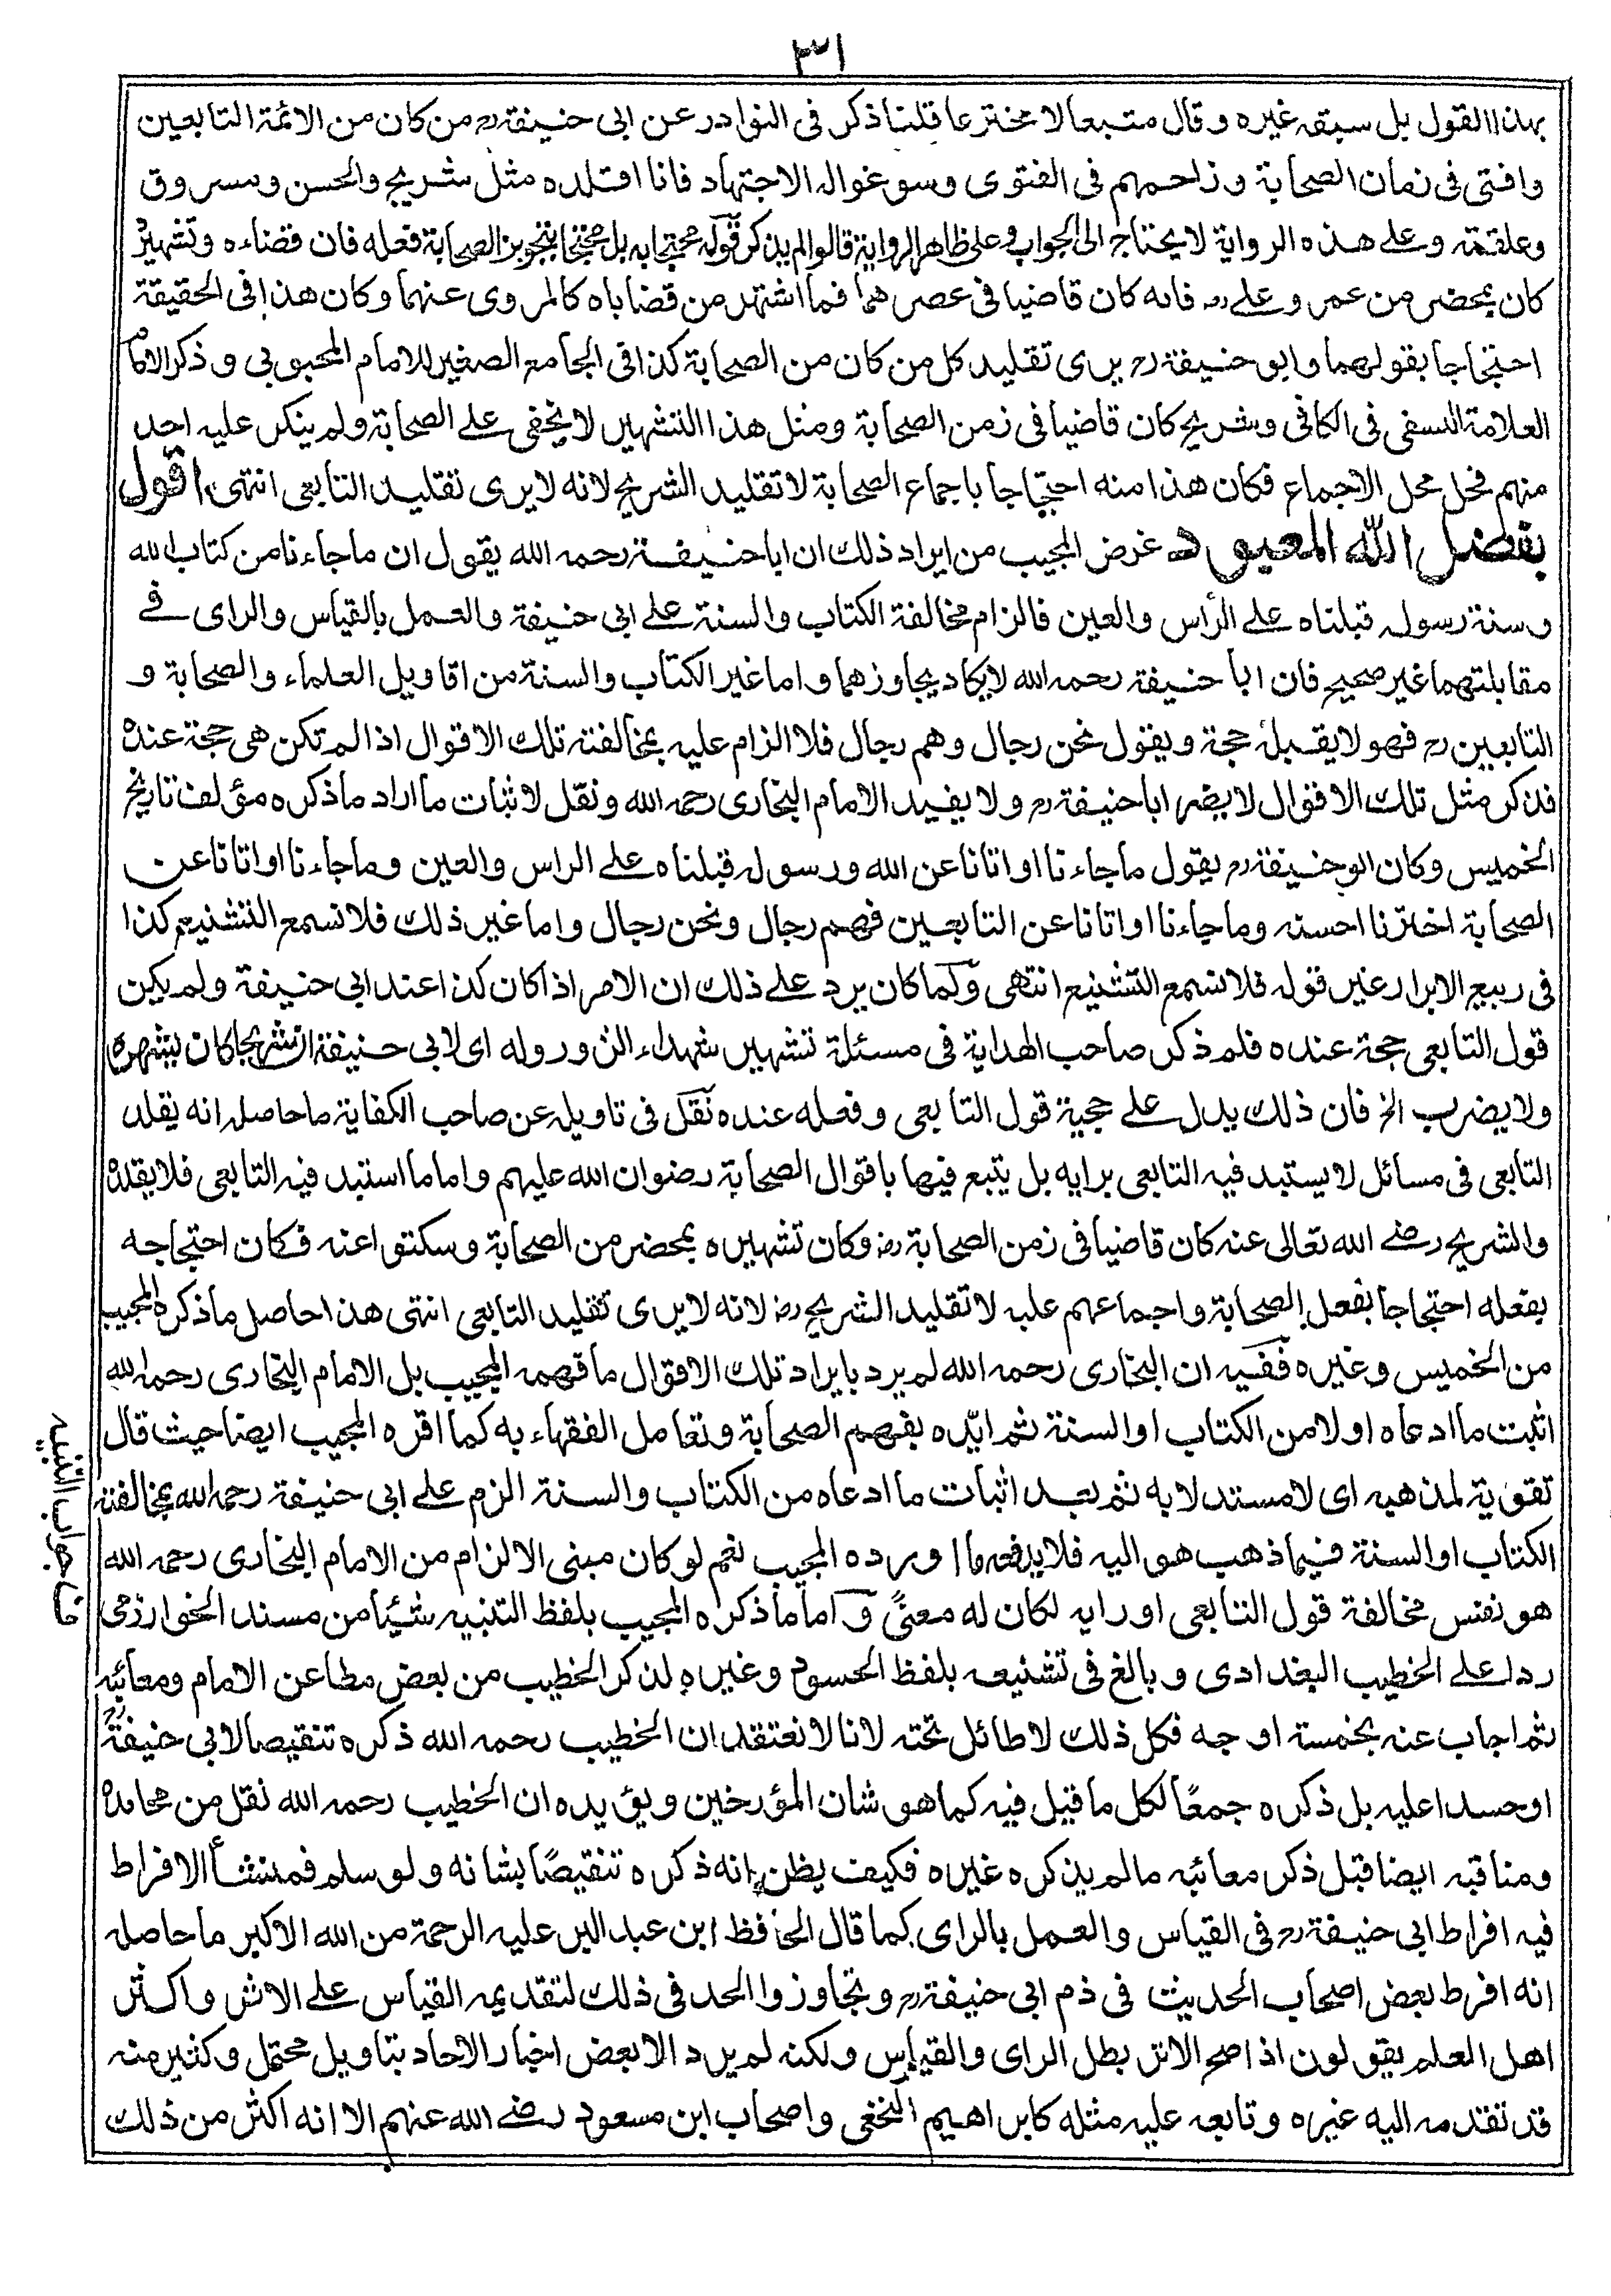 ٣١
بهذا القول بل سبقه غيره وقال متبعا لا مخترعا قلنا ذكر فى النوادر عن ابى حنيفة رح من كان من الائمة التابعين
وافتى فى زمان الصحابة وزاحمهم فى الفتوى وسوغوا له الاجتهاد فانا اقلده مثل شريح والحسن ومسروق
وعلقمة وعلى هذه الرواية لا يحتاج الى الجواب وعلى ظاهر الرواية قالوا لم يذكر قوله محتجا به بل محتجا بتجويز الصحابة فعله فان قضاءه وتشهيره
كان بمحضر من عمر وعلى رض فانه كان قاضيا فى عصرهما فما اشتهر من قضاياه كالمروى عنهما وكان هذا فى الحقيقة
احتجاجا بقولهما وابو حنيفة رح يرى تقليد كل من كان من الصحابة كذا فى الجامع الصغير للامام المحبوبى وذكر الامام
العلامة النسفى فى الكافى وشريح كان قاضيا فى زمن الصحابة ومثل هذا التشهير لا يخفى على الصحابة ولم ينكر عليه احد
منهم فحل محل الاجماع فكان هذا منه احتجاجا باجماع الصحابة لا تقليد الشريح لانه لا يرى تقليد التابعى انتهى اقول
بفضل الله المعبود غرض المجيب من ايراد ذلك ان ابا حنيفة رحمه الله يقول ان ما جاءنا من كتاب الله
وسنة رسوله قبلناه على الرأس والعين فالزام مخالفة الكتاب والسنة على ابى حنيفة والعمل بالقياس والراى فى
مقابلتهما غير صحيح فان ابا حنيفة رحمه الله لا يكاد يجاوزهما واما غير الكتاب والسنة من اقاويل العلماء والصحابة و
التابعين رح فهو لا يقبله حجة ويقول نحن رجال وهم رجال فلا الزام عليه بمخالفة تلك الاقوال اذا لم تكن هى حجة عنده
فذكر مثل تلك الاقوال لا يضر ابا حنيفة رح ولا يفيد الامام البخارى رحمه الله ونقل لاثبات ما اراد ما ذكره مؤلف تاريخ
الخميس وكان ابو حنيفة رح يقول ما جاءنا او اتانا عن الله ورسوله قبلناه على الراس والعين وما جاءنا او اتانا عن
الصحابة اخترنا احسنه وما جاءنا او اتانا عن التابعين فهم رجال ونحن رجال واما غير ذلك فلا نسمع التشنيع كذا
فى ربيع الابرار غير قوله فلا نسمع التشنيع انتهى ولما كان يرد على ذلك ان الامر اذا كان كذا عند ابى حنيفة ولم يكن
قول التابعى حجة عنده فلم ذكر صاحب الهداية فى مسئلة تشهير شهداء الزور وله اى لابى حنيفة ان شريحا كان يشهره
ولا يضرب الخ فان ذلك يدل على حجية قول التابعى وفعله عنده نقل فى تاويله عن صاحب الكفاية ما حاصله انه يقلد
التابعى فى مسائل لا يستبد فيه التابعى برايه بل يتبع فيها باقوال الصحابة رضوان الله عليهم واما ما استبد فيه التابعى فلا يقلده
والشريح رضى الله تعالى عنه كان قاضيا فى زمن الصحابة رض وكان تشهيره بمحضر من الصحابة وسكتوا عنه فكان احتجاجه
بفعله احتجاجا بفعل الصحابة واجماعهم عليه لا تقليد الشريح رض لانه لا يرى تقليد التابعى انتهى هذا حاصل ما ذكره المجيب
من الخميس وغيره ففيه ان البخارى رحمه الله لم يرد بايراد تلك الاقوال ما فهمه المجيب بل الامام البخارى رحمه الله
اثبت ما ادعاه اولا من الكتاب او السنة ثم ايّده بفهم الصحابة وتعامل الفقهاء به كما اقره المجيب ايضا حيث قال
تقوية لمذهبه اى لا مستدلا به ثم بعد اثبات ما ادعاه من الكتاب والسنة الزم على ابى حنيفة رحمه الله بمخالفة
الكتاب او السنة فيما ذهب هو اليه فلا يدفعه ما اورده المجيب نعم لو كان مبنى الالزام من الامام البخارى رحمه الله
هو نفس مخالفة قول التابعى او رايه لكان له معنىً واما ما ذكره المجيب بلفظ التنبيه شيئا من مسند الخوارزمى
ردا على الخطيب البغدادى وبالغ فى تشنيعه بلفظ الحسود وغيره لذكر الخطيب من بعض مطاعن الامام ومعائبه
ثم اجاب عنه بخمسة اوجه فكل ذلك لا طائل تحته لانا لا نعتقد ان الخطيب رحمه الله ذكره تنقيصا لابى حنيفة رح
او حسدا عليه بل ذكره جمعًا لكل ما قيل فيه كما هو شان المؤرخين ويؤيده ان الخطيب رحمه الله نقل من محامده
ومناقبه ايضا قبل ذكر معائبه ما لم يذكره غيره فكيف يظن انه ذكره تنقيصًا بشانه ولو سلم فمنشأ الافراط
فيه افراط ابى حنيفة رح فى القياس والعمل بالراى كما قال الحافظ ابن عبد البر عليه الرحمة من الله الاكبر ما حاصله
انه افرط بعض اصحاب الحديث فى ذم ابى حنيفة رح وتجاوزوا الحد فى ذلك لتقديمه القياس على الاثر واكثر
اهل العلم يقولون اذا صح الاثر بطل الراى والقياس ولكنه لم يرد الا بعض اخبار الاحاد بتاويل محتمل وكثير منه
قد تقدمه اليه غيره وتابعه عليه مثله كابراهيم النخعى واصحاب ابن مسعود رضى الله عنهم الا انه اكثر من ذلك
جواب التنبيه